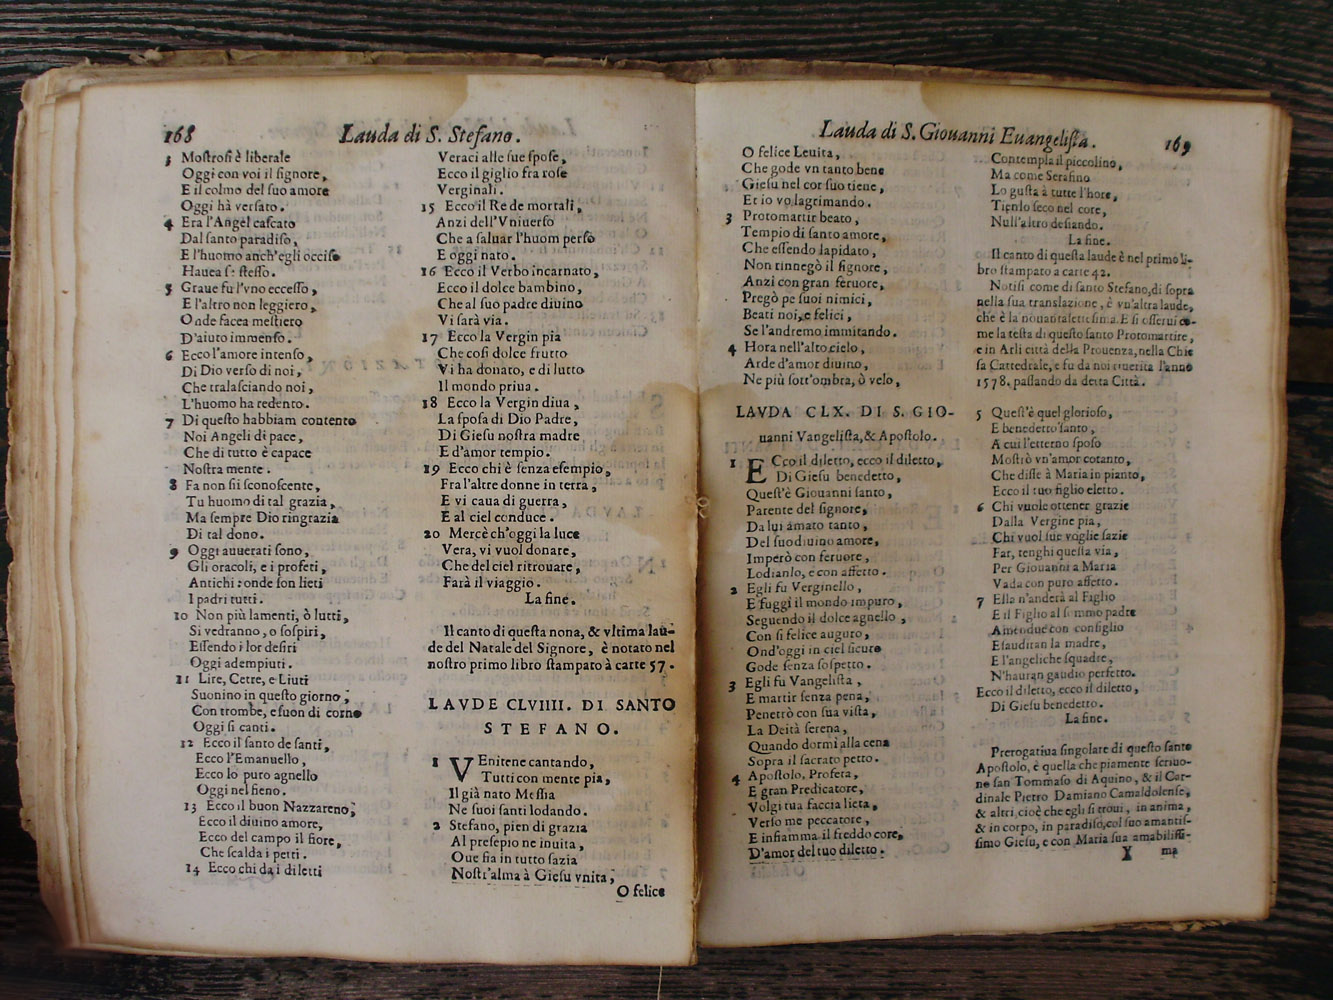 168
Lauda di S. Stefano.
3 Mostrosi è liberale
Oggi con voi il signore,
E il colmo del suo amore
Oggi hà versato.
4 Era l'Angel cascato
Dal santo paradiso,
E l'huomo anch'egli occiso
Hauea se stesso.
5 Graue fu l'vno eccesso,
E l'altro non leggiero,
Onde facea mestiero
D'aiuto immenso.
6 Ecco l'amore intenso,
Di Dio verso di noi,
Che tralasciando noi,
L'huomo ha redento.
7 Di questo habbiam contento
Noi Angeli di pace,
Che di tutto è capace
Nostra mente.
8 Fa non sii sconoscente,
Tu huomo di tal grazia,
Ma sempre Dio ringrazia
Di tal dono.
9 Oggi auuerati sono,
Gli oracoli, e i profeti,
Antichi: onde son lieti
I padri tutti.
10 Non più lamenti, ò lutti,
Si vedranno, o sospiri,
Essendo i lor desiri
Oggi adempiuti.
11 Lire, Cetre, e Liuti
Suonino in questo giorno,
Con trombe, e suon di corno
Oggi si canti.
12 Ecco il santo de santi,
Ecco l'Emanuello,
Ecco lo puro agnello
Oggi nel fieno.
13 Ecco il buon Nazzareno,
Ecco il diuino amore,
Ecco del campo il fiore,
Che scalda i petti.
14 Ecco chi da i diletti
Veraci alle sue spose,
Ecco il giglio fra rose
Verginali.
15 Ecco il Re de mortali,
Anzi dell'Vniuerso
Che a saluar l'huom perso
E oggi nato.
16 Ecco il Verbo incarnato,
Ecco il dolce bambino,
Che al suo padre diuino
Vi sarà via.
17 Ecco la Vergin pia
Che così dolce frutto
Vi ha donato, e di lutto
Il mondo priua.
18 Ecco la Vergin diua,
La sposa di Dio Padre,
Di Giesu nostra madre
E d'amor tempio.
19 Ecco chi è senza esempio,
Fra l'altre donne in terra,
E vi caua di guerra,
E al ciel conduce.
20 Mercè ch'oggi la luce
Vera, vi vuol donare,
Che del ciel ritrouare,
Farà il viaggio.
La fine.
Il canto di questa nona, & vltima lau-
de del Natale del Signore, è notato nel
nostro primo libro stampato à carte 57.
LAVDE CLVIIII. DI SANTO
STEFANO.
1 VEnitene cantando,
Tutti con mente pia,
Il già nato Messia
Ne suoi santi lodando.
2 Stefano, pien di grazia
Al presepio ne inuita,
Oue sia in tutto sazia
Nostr'alma à Giesu vnita,
O felice
Lauda di S. Giouanni Euangelista.
169
O felice Leuita,
Che gode vn tanto bene
Giesu nel cor suo tiene,
Et io vo lagrimando.
3 Protomartir beato,
Tempio di santo amore,
Che essendo lapidato,
Non rinnegò il signore,
Anzi con gran feruore,
Pregò pe suoi nimici,
Beati noi, e felici,
Se l'andremo immitando.
4 Hora nell'alto cielo,
Arde d'amor diuino,
Ne più sott'ombra, ò velo,
Contempla il piccolino,
Ma come Serafino
Lo gusta à tutte l'hore,
Tienlo seco nel core,
Null'altro desiando.
La fine.
Il canto di questa laude è nel primo li-
bro stampato a carte 42.
Notisi come di santo Stefano, di sopra
nella sua translazione, è vn'altra laude,
che è la nouantasettesima. E si osserui co-
me la testa di questo santo Protomartire,
e in Arli città della Prouenza, nella Chie
sa Cattedrale, e fu da noi riuerita l'anno
1578. passando da detta Città.
LAVDA CLX. DI S. GIO-
uanni Vangelista, & Apostolo.
1 ECco il diletto, ecco il diletto,
Di Giesu benedetto,
Quest'è Giouanni santo,
Parente del signore,
Da lui amato tanto,
Del suo diuino amore,
Imperò con feruore,
Lodianlo, e con affetto.
2 Egli fu Verginello,
E fuggì il mondo impuro,
Seguendo il dolce agnello,
Con sì felice auguro,
Ond'oggi in ciel sicuro
Gode senza sospetto.
3 Egli fu Vangelista,
E martir senza pena,
Penetrò con sua vista,
La Deità serena,
Quando dormì alla cena
Sopra il sacrato petto.
4 Apostolo, Profeta,
E gran Predicatore,
Volgi tua faccia lieta,
Verso me peccatore,
E infiamma il freddo core,
D'amor del tuo diletto.
5 Quest'è quel glorioso,
E benedetto santo,
A cui l'etterno sposo
Mostrò vn'amor cotanto,
Che disse à Maria in pianto,
Ecco il tuo figlio eletto.
6 Chi vuole ottener grazie
Dalla Vergine pia,
Chi vuol sue voglie sazie
Far, tenghi questa via,
Per Giouanni a Maria
Vada con puro affetto.
7 Ella n'anderà al Figlio
E il Figlio al sommo padre
Amendue con consiglio
Esauditan la madre,
E l'angeliche squadre,
N'hauran gaudio perfetto.
Ecco il diletto, ecco il diletto,
Di Giesu benedetto.
La fine.
Prerogatiua singolare di questo santo
Apostolo, è quella che piamente scriuo-
no san Tommaso di Aquino, & il Car-
dinale Pietro Damiano Camaldolense,
& altri, cioè che egli si troui, in anima,
& in corpo, in paradiso, col suo amantis-
simo Giesu, e con Maria sua amabilissi-
X ma